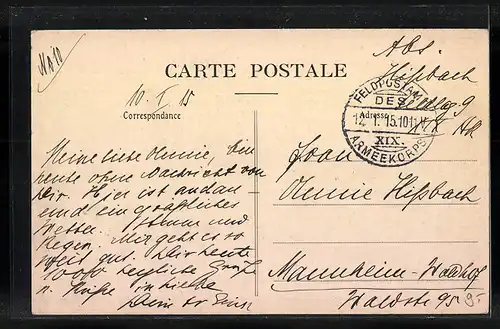 Abs.
Hißbach
CARTE POSTALE
10. I. 15
Correspondance
Adresse
FELDPOSTAMT
DES
12.1.15.10-11V.
XIX.
ARMEEKORPS
Meine liebe
heute ohne Nachricht von
Dir. Hier ist andau-
ernd ein
Wetter. Sturm und
Regen. Mir geht es so
weit gut. Dir heute
1000 herzliche Grüße
u. Küsse in Liebe
Dein
Frau
Hißbach
Mannheim-Waldhof
Waldstr 95